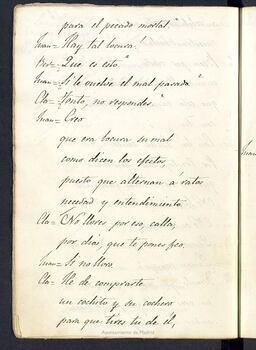 para el pecado mortal."
Juan= Hay tal locura!
Ber= Que es esto."
Juan= Si le vuelve el mal pasado"
Cla= Tonto, no respondes.
Juan= Creo
que era locura su mal
como dicen los efectos,
puesto que alternan á ratos
necedad y entendimiento.
Cla= No llores por eso, calla,
por dios, que te pones feo.
Juan= Si no lloro
Cla= He de comprarte
un cochito y su cochero
para que tires tu de él,
Juan
Ayuntamiento de Madrid